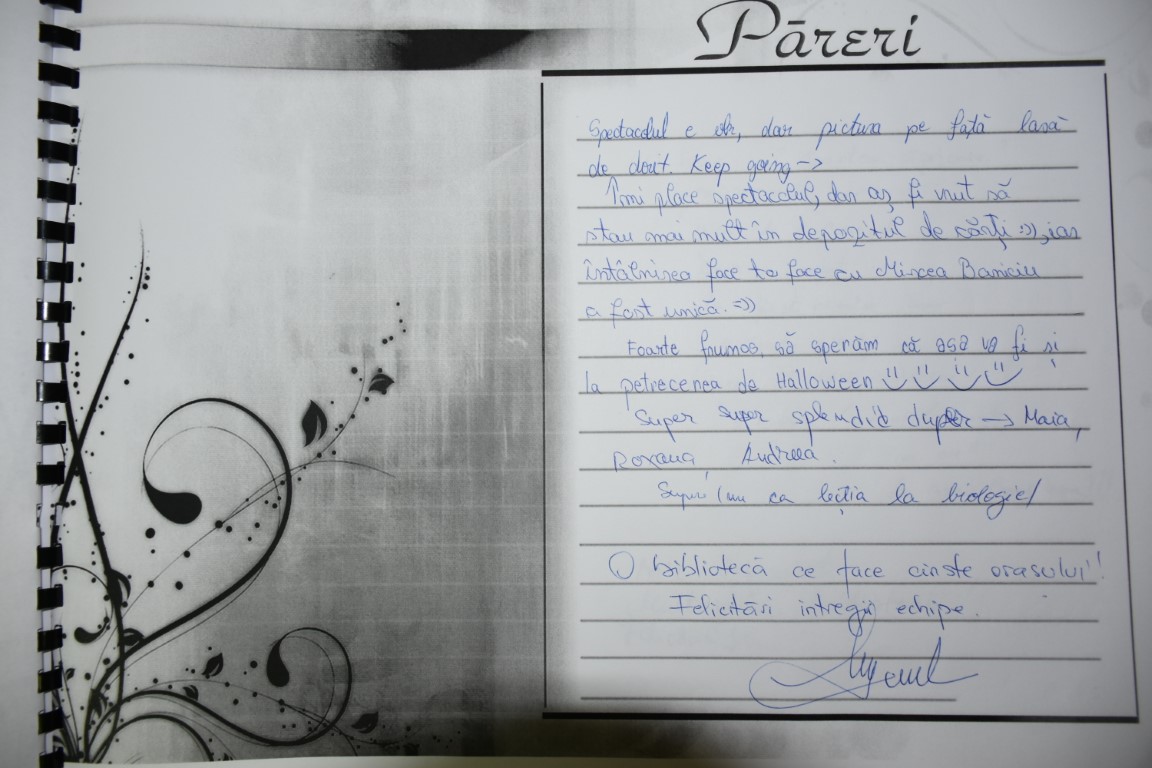 Păreri
Spectacolul e ok, dar pictura pe față lasă
de dorit. Keep going ->
Îmi place spectacolul, dar aș fi vrut să
stau mai mult în depozitul de cărți :)), iar
întâlnirea face to face cu Mircea Baniciu
a fost unică. =))
Foarte frumos, să sperăm că așa va fi și
la petrecerea de Halloween
Super super splendid duper -> Maia,
Roxana, Andreea.
Super (nu ca lecția la biologie)
O bibliotecă ce face cinste orasului!!
Felicitări intregii echipe.